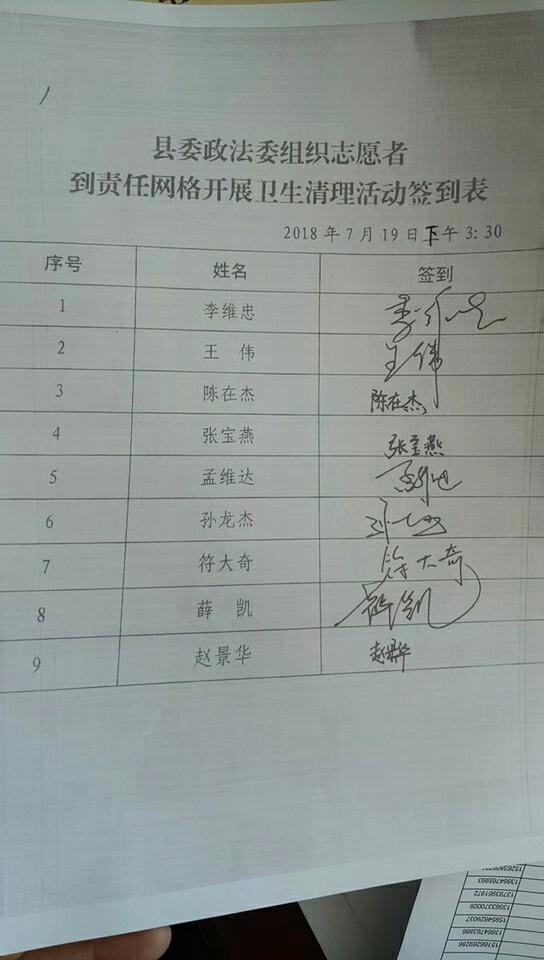 县委政法委组织志愿者
到责任网格开展卫生清理活动签到表
2018年7月19日下午3:30
序号 姓名 签到
1 李维忠 李维忠
2 王 伟 王伟
3 陈在杰 陈在杰
4 张宝燕 张宝燕
5 孟维达
6 孙龙杰
7 符大奇 符大奇
8 薛 凯
9 赵景华 赵景华
13864765993
13793961972
13563370009
15954629037
13864763866
15166269286